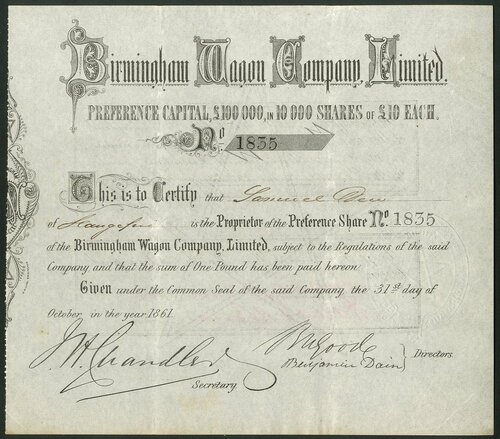 Birmingham Wagon Company, Limited.
PREFERENCE CAPITAL, £100 000, IN 10 000 SHARES OF £10 EACH.
No. 1835
This is to Certify that Samuel
of is the Proprietor of the Preference Share No. 1835
of the Birmingham Wagon Company, Limited, subject to the Regulations of the said
Company and that the sum of One Pound has been paid hereon.
Given under the Common Seal of the said Company the 31st day of
October in the year 1861.
J. H. Chandler
Secretary.
Benjamin Dain
Directors.